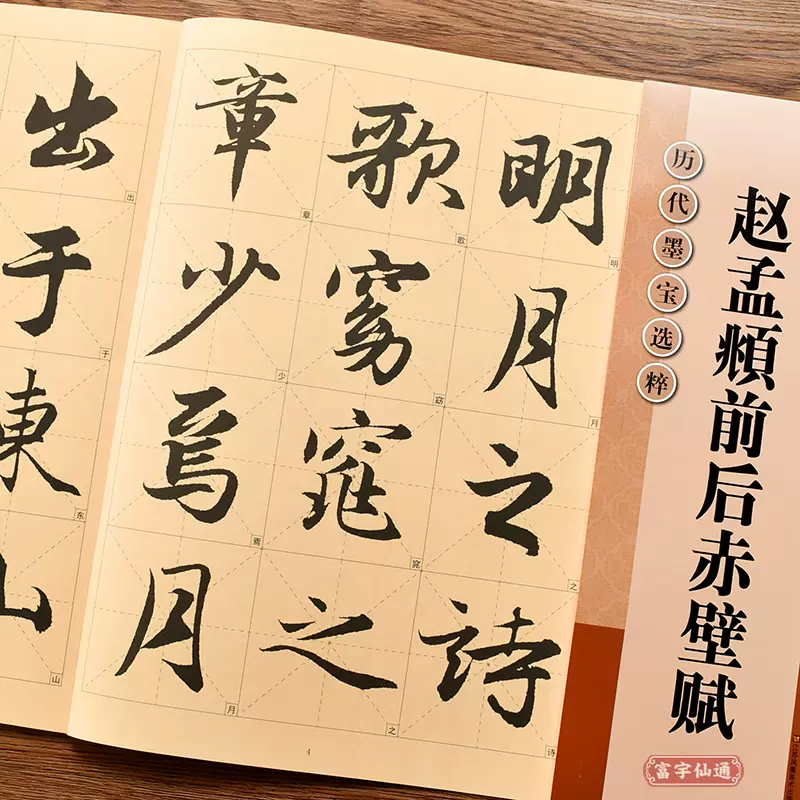 赵孟頫前后赤壁赋
历代墨宝选粹
明月之詩
明月之诗
歌窈窕之
歌窈窕之
章少焉月
章少焉月
出于東山
出于东山
4
富宇仙通